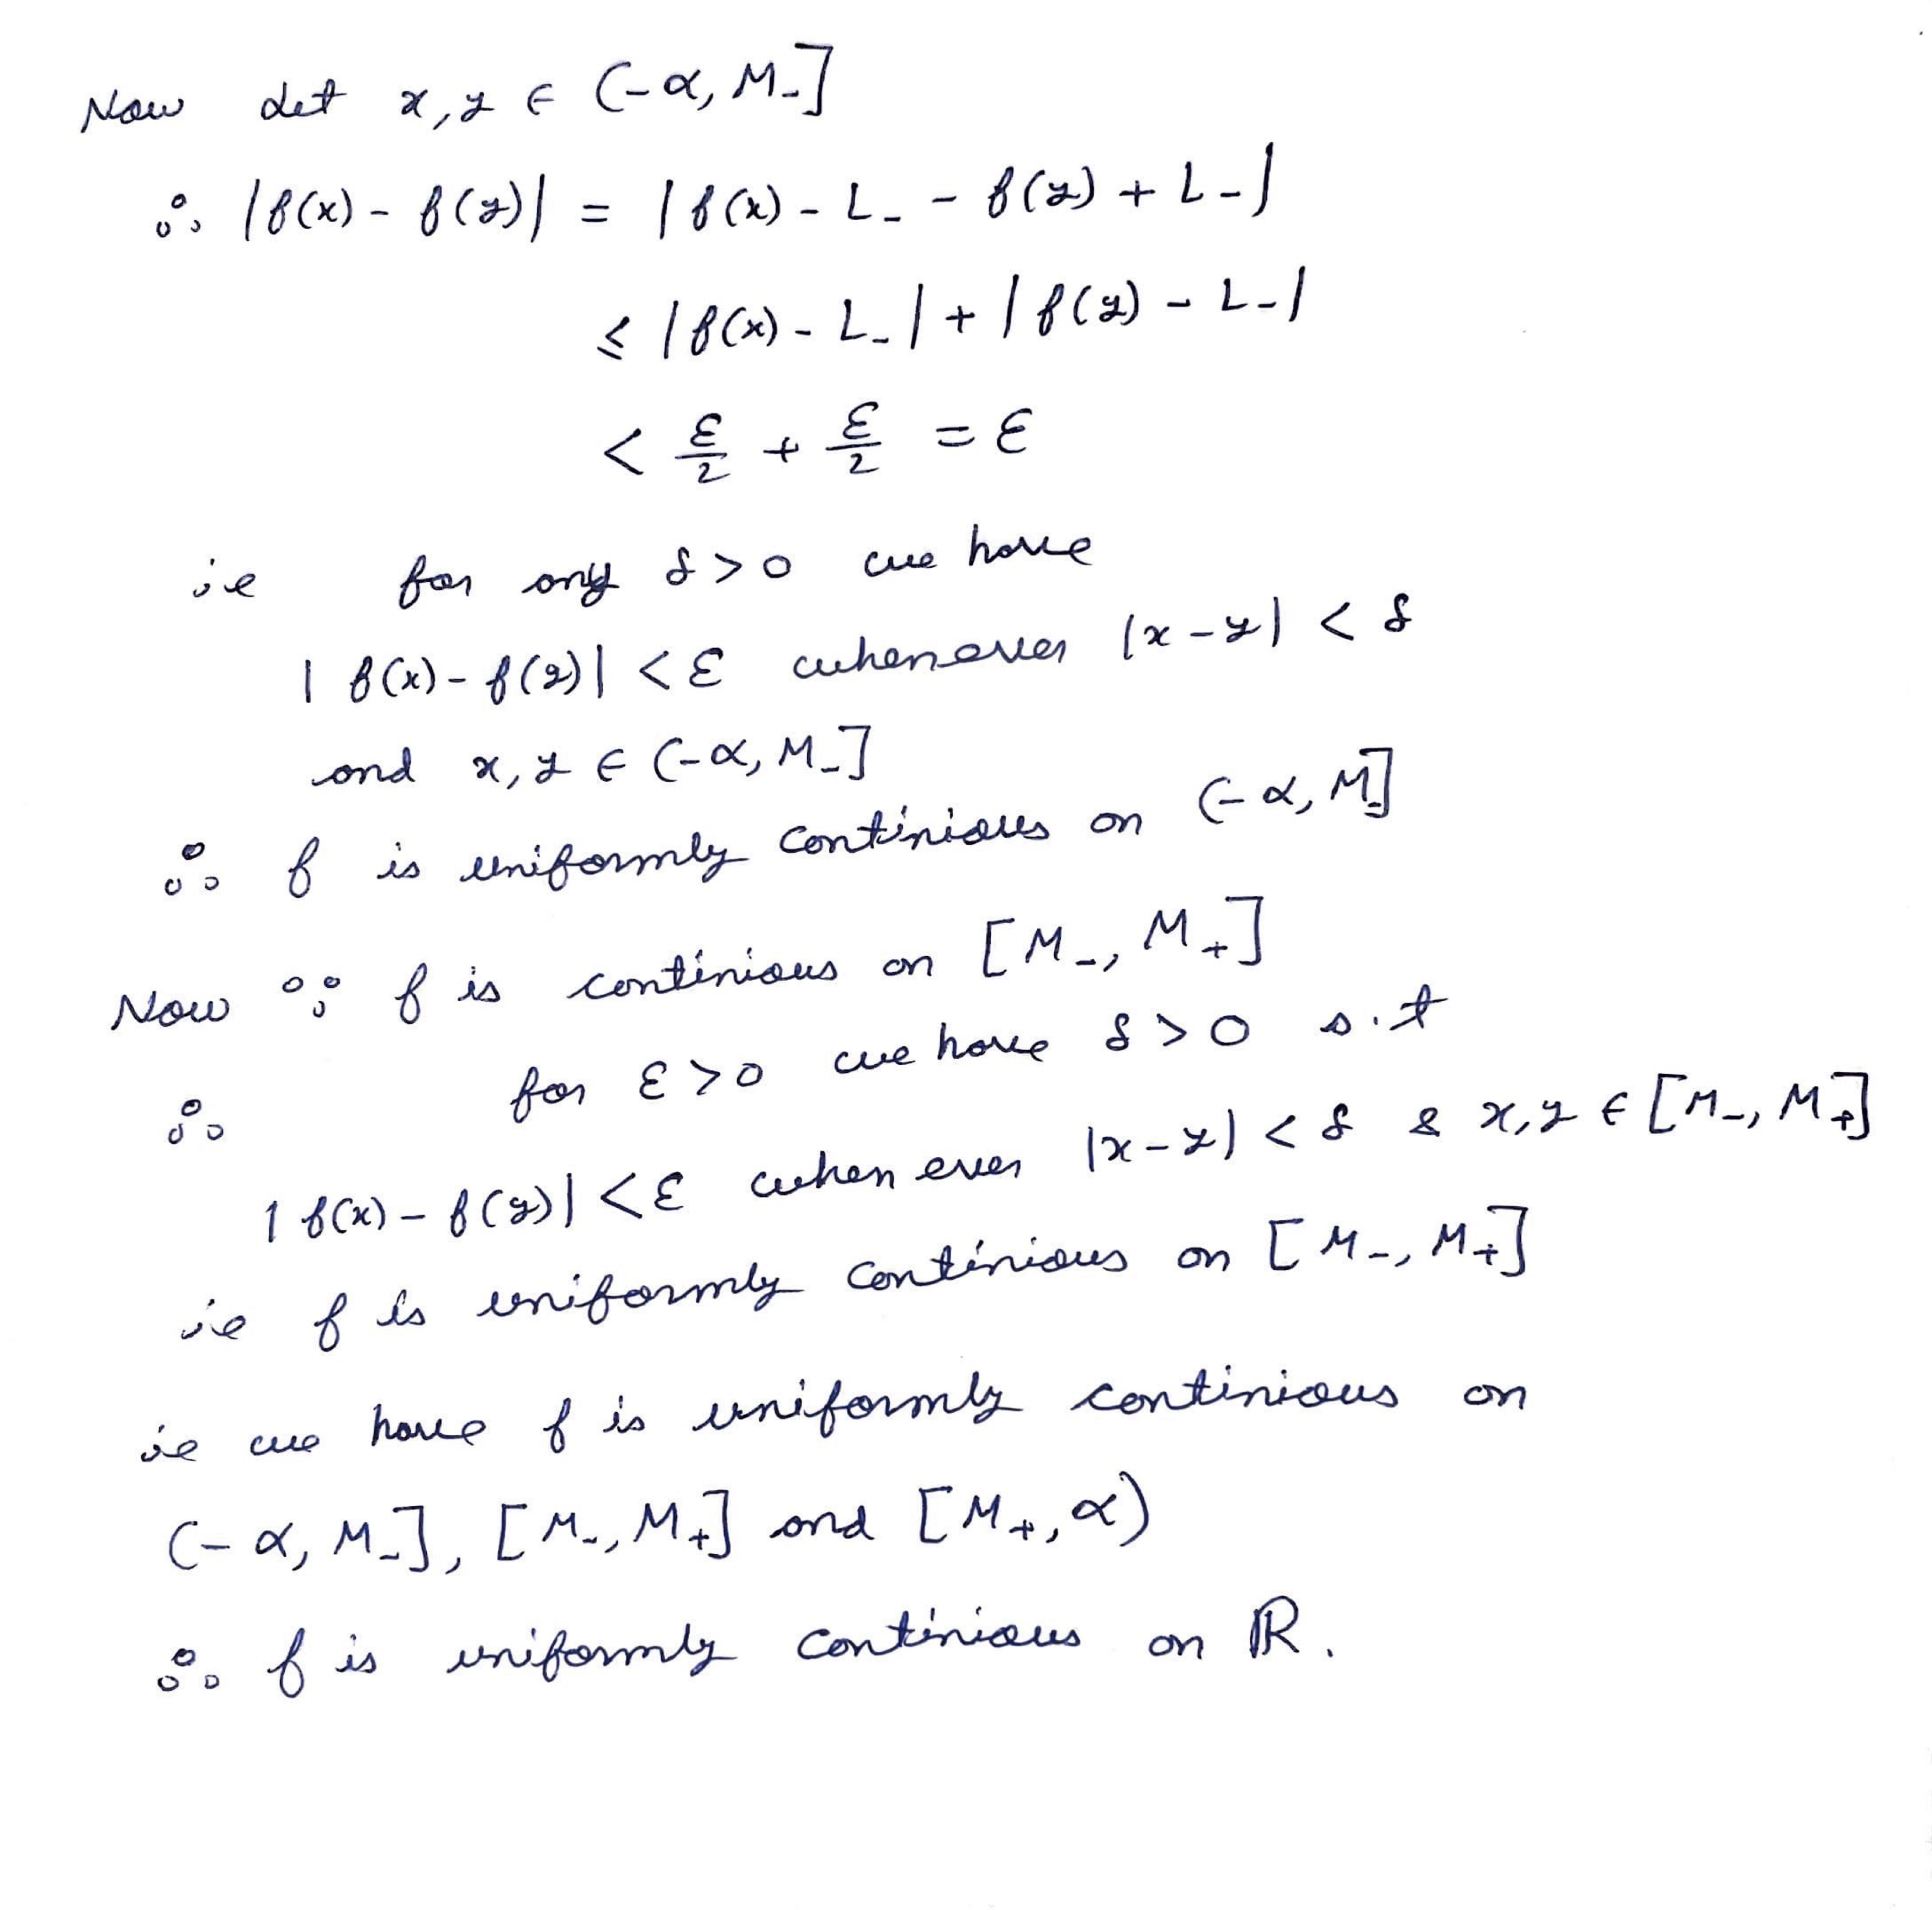 Now Let x, y ∈ (-α, M_-]
∴ |f(x) - f(y)| = |f(x) - L_- - f(y) + L_-|
≤ |f(x) - L_-| + |f(y) - L_-|
< ε/2 + ε/2 = ε
ie for any δ > 0 we have
|f(x) - f(y)| < ε whenever |x - y| < δ
and x, y ∈ (-α, M_-]
∴ f is uniformly continious on (-α, M_-]
Now ∵ f is continious on [M_-, M_+]
∴ for ε > 0 we have δ > 0 s.t
|f(x) - f(y)| < ε when ever |x - y| < δ & x, y ∈ [M_-, M_+]
ie f is uniformly continious on [M_-, M_+]
ie we have f is uniformly continious on
(-α, M_-], [M_-, M_+] and [M_+, α)
∴ f is uniformly continious on ℝ.